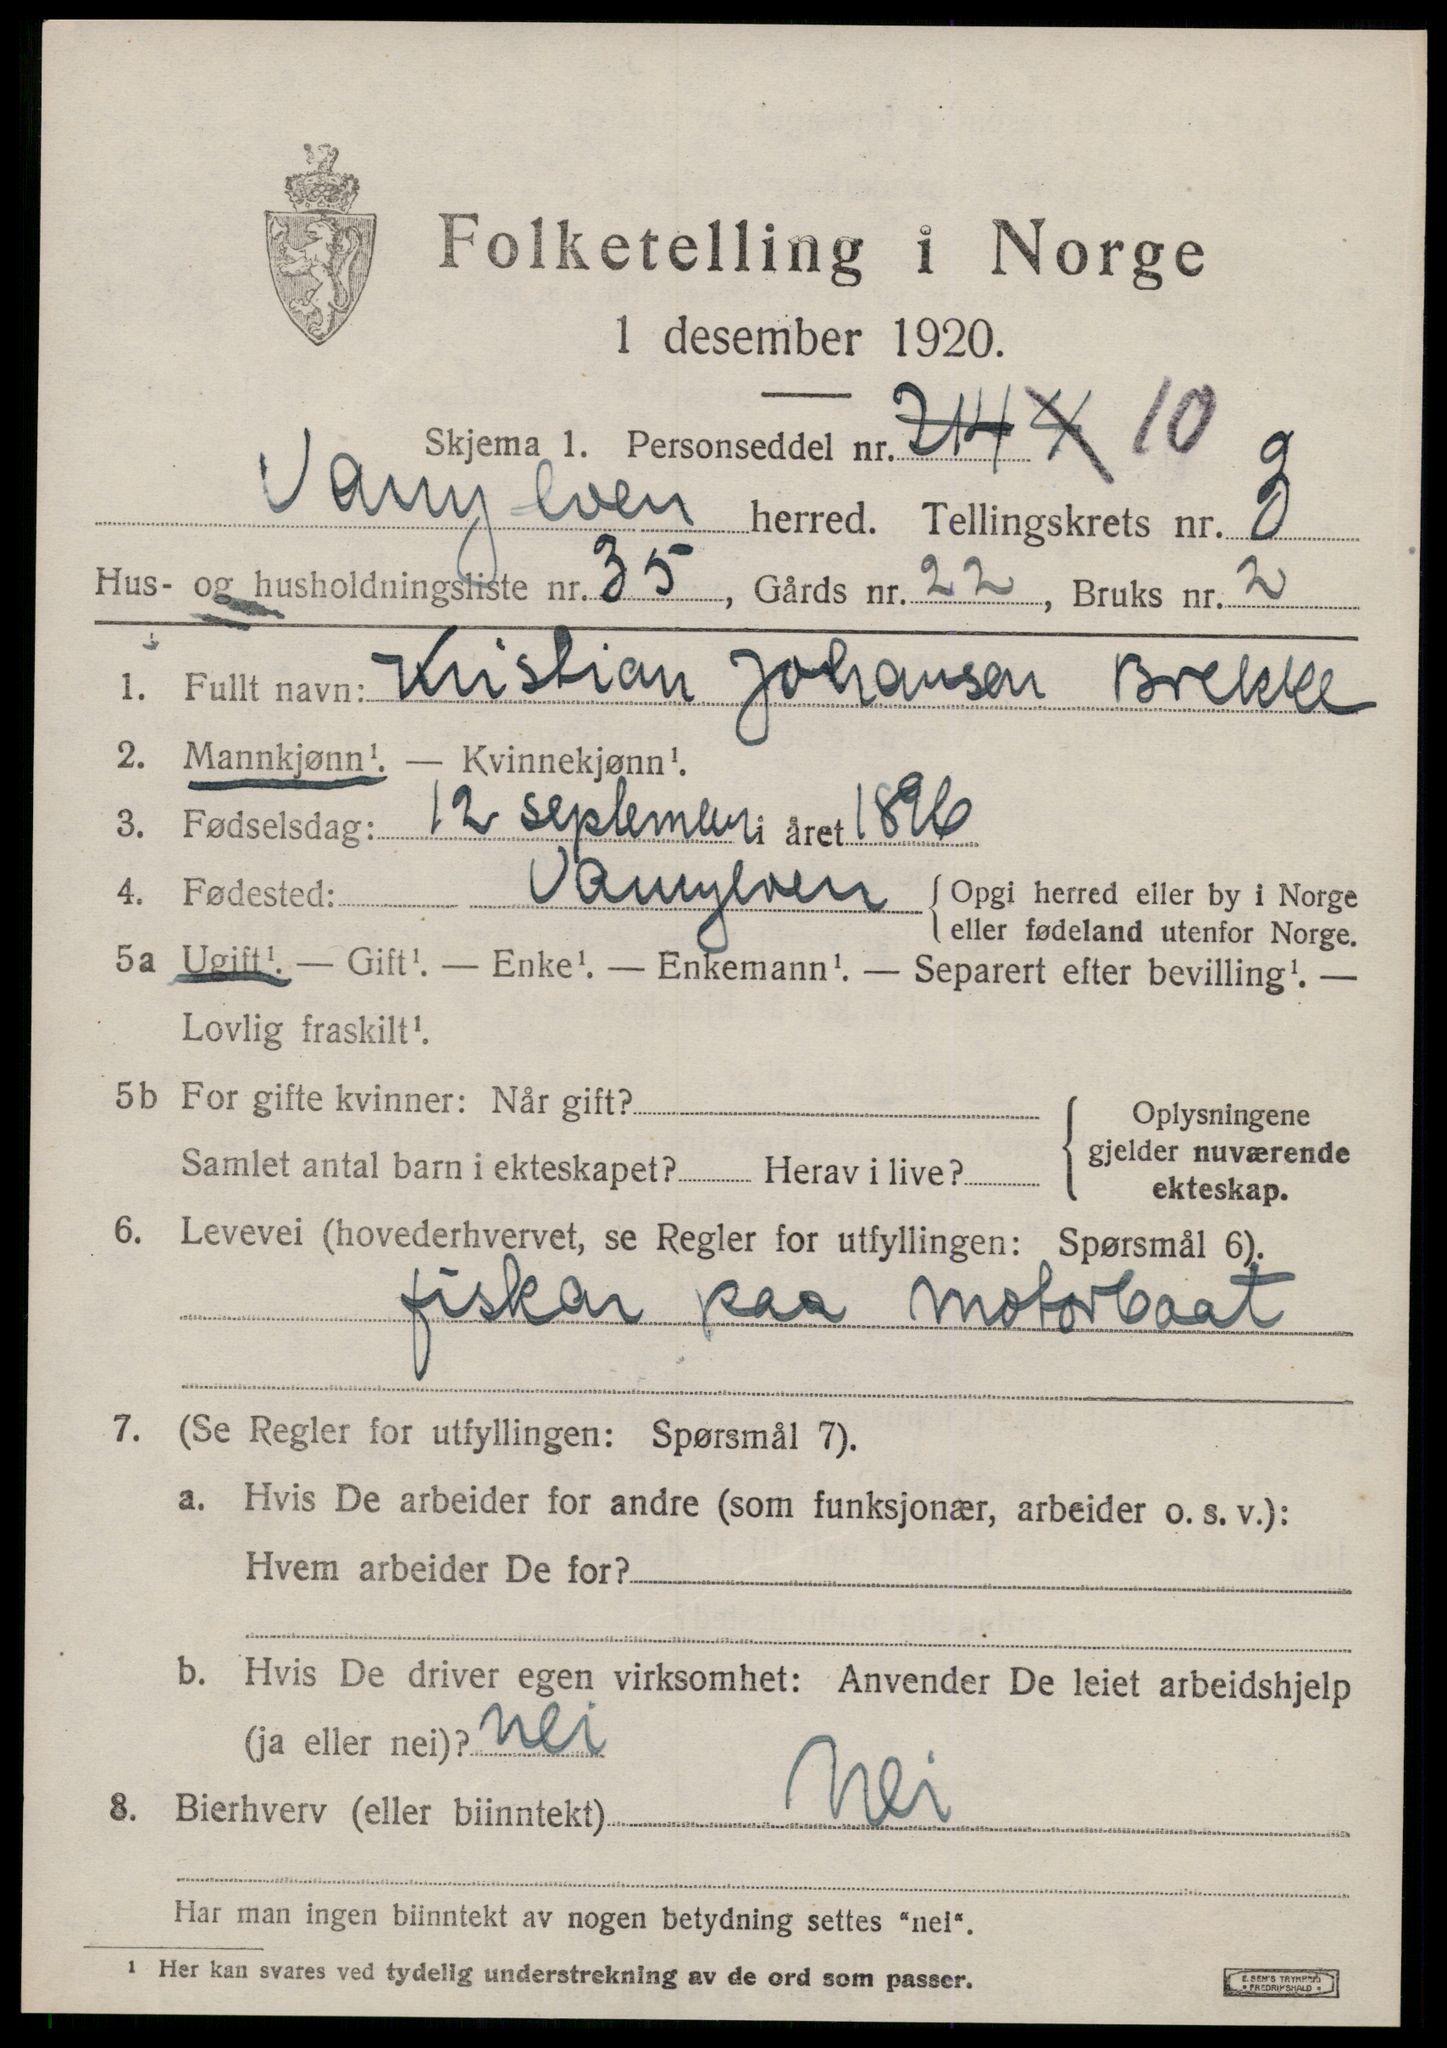 Folketelling i Norge
1 desember 1920.
Skjema 1. Personseddel nr. 214 4 10
Vanylven herred. Tellingskrets nr. 3
Hus- og husholdningsliste nr. 35, Gårds nr. 22, Bruks nr. 2
1. Fullt navn: Kristian Johansen Brekke
2. Mannkjønn¹. — Kvinnekjønn¹.
3. Fødselsdag: 12 september i året 1896
4. Fødested: Vanylven { Opgi herred eller by i Norge
eller fødeland utenfor Norge.
5a Ugift¹. — Gift¹. — Enke¹. — Enkemann¹. — Separert efter bevilling¹. —
Lovlig fraskilt¹.
5b For gifte kvinner: Når gift? { Oplysningene
gjelder nuværende
Samlet antal barn i ekteskapet? Herav i live?
ekteskap.
6. Levevei (hovederhvervet, se Regler for utfyllingen: Spørsmål 6).
fiskar paa motorbaat
7. (Se Regler for utfyllingen: Spørsmål 7).
a. Hvis De arbeider for andre (som funksjonær, arbeider o. s. v.):
Hvem arbeider De for?
b. Hvis De driver egen virksomhet: Anvender De leiet arbeidshjelp
(ja eller nei)? nei
8. Bierhverv (eller biinntekt) Nei
Har man ingen biinntekt av nogen betydning settes "nei".
¹ Her kan svares ved tydelig understrekning av de ord som passer.
E. SEM'S TRYKKERI
• FREDRIKSHALD •